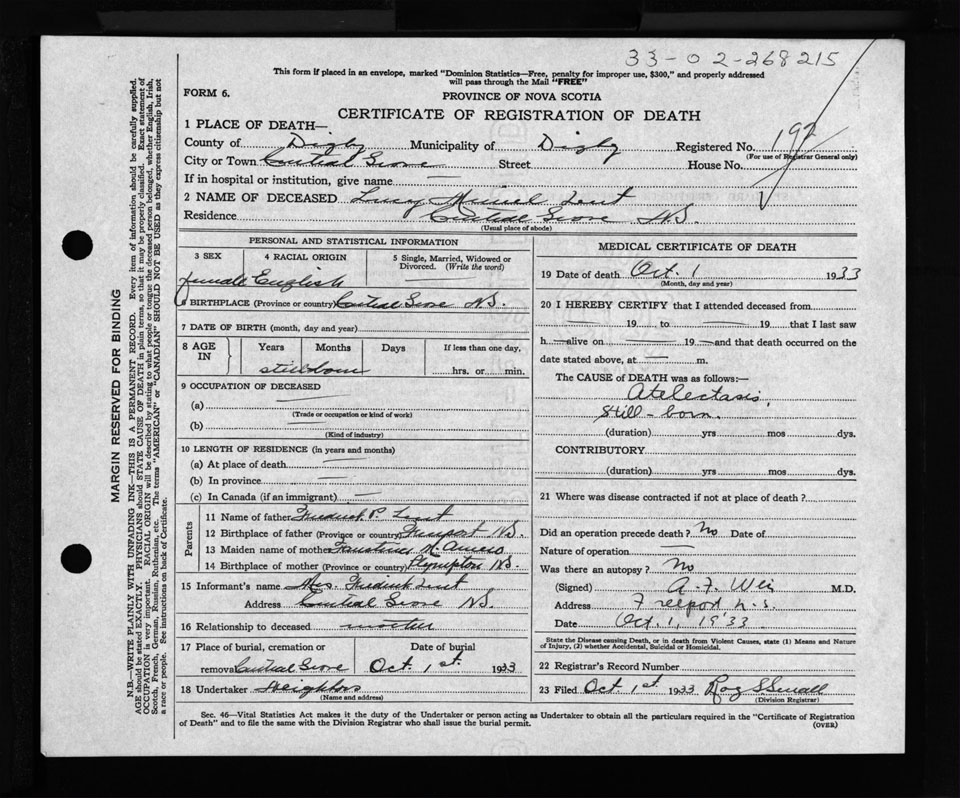 33-02-268215
This form if placed in an envelope, marked "Dominion Statistics—Free, penalty for improper use, $300," and properly addressed
will pass through the Mail "FREE"
FORM 6.
PROVINCE OF NOVA SCOTIA
CERTIFICATE OF REGISTRATION OF DEATH
1 PLACE OF DEATH—
County of Digby Municipality of Digby Registered No. 192
(For use of Registrar General only)
City or Town Central Grove Street House No.
If in hospital or institution, give name —
2 NAME OF DECEASED Lucy Muriel Lent
Residence Central Grove N.S.
(Usual place of abode)
PERSONAL AND STATISTICAL INFORMATION
3 SEX 4 RACIAL ORIGIN 5 Single, Married, Widowed or
Divorced. (Write the word)
female English
6 BIRTHPLACE (Province or country) Central Grove N.S.
7 DATE OF BIRTH (month, day and year)
8 AGE IN Years Months Days If less than one day,
stillborn hrs. or min.
9 OCCUPATION OF DECEASED
(a)
(Trade or occupation or kind of work)
(b)
(Kind of industry)
10 LENGTH OF RESIDENCE (in years and months)
(a) At place of death
(b) In province
(c) In Canada (if an immigrant)
Parents
11 Name of father Fredrick P. Lent
12 Birthplace of father (Province or country) Freeport N.S.
13 Maiden name of mother M.
14 Birthplace of mother (Province or country) Plympton N.S.
15 Informant's name Mrs. Fredrick Lent
Address Central Grove N.S.
16 Relationship to deceased mother
17 Place of burial, cremation or Date of burial
removal Central Grove Oct. 1st. 1933
18 Undertaker Neighbors
(Name and address)
MEDICAL CERTIFICATE OF DEATH
19 Date of death Oct. 1 1933
(Month, day and year)
20 I HEREBY CERTIFY that I attended deceased from
— 19 to — 19 that I last saw
h — alive on — 19 — and that death occurred on the
date stated above, at — m.
The CAUSE OF DEATH was as follows:—
Atelectasis,
still-born.
(duration) yrs mos dys.
CONTRIBUTORY
(duration) yrs mos dys.
21 Where was disease contracted if not at place of death?
Did an operation precede death? No Date of
Nature of operation —
Was there an autopsy? No
(Signed) A. F. Weir M.D.
Address Freeport n.s.
Date Oct. 1, 1933
State the Disease causing Death, or in death from Violent Causes, state (1) Means and Nature
of Injury, (2) whether Accidental, Suicidal or Homicidal.
22 Registrar's Record Number
23 Filed Oct 1st 1933 Roy S Small
(Division Registrar)
Sec. 46—Vital Statistics Act makes it the duty of the Undertaker or person acting as Undertaker to obtain all the particulars required in the "Certificate of Registration
of Death" and to file the same with the Division Registrar who shall issue the burial permit.
(OVER)
MARGIN RESERVED FOR BINDING
N.B.—WRITE PLAINLY WITH UNFADING INK—THIS IS A PERMANENT RECORD. Every item of information should be carefully supplied.
AGE should be stated EXACTLY. PHYSICIANS should STATE CAUSE OF DEATH in plain terms, so that it may be properly classified. Exact statement of
OCCUPATION is very important. RACIAL ORIGIN will be described by stating to what people or tongue the deceased person belonged, whether English, Irish,
Scotch, French, German, Russian, Ruthenian, etc. The terms "AMERICAN" or "CANADIAN" SHOULD NOT BE USED as they express citizenship but not
a race or people. See instructions on back of Certificate.